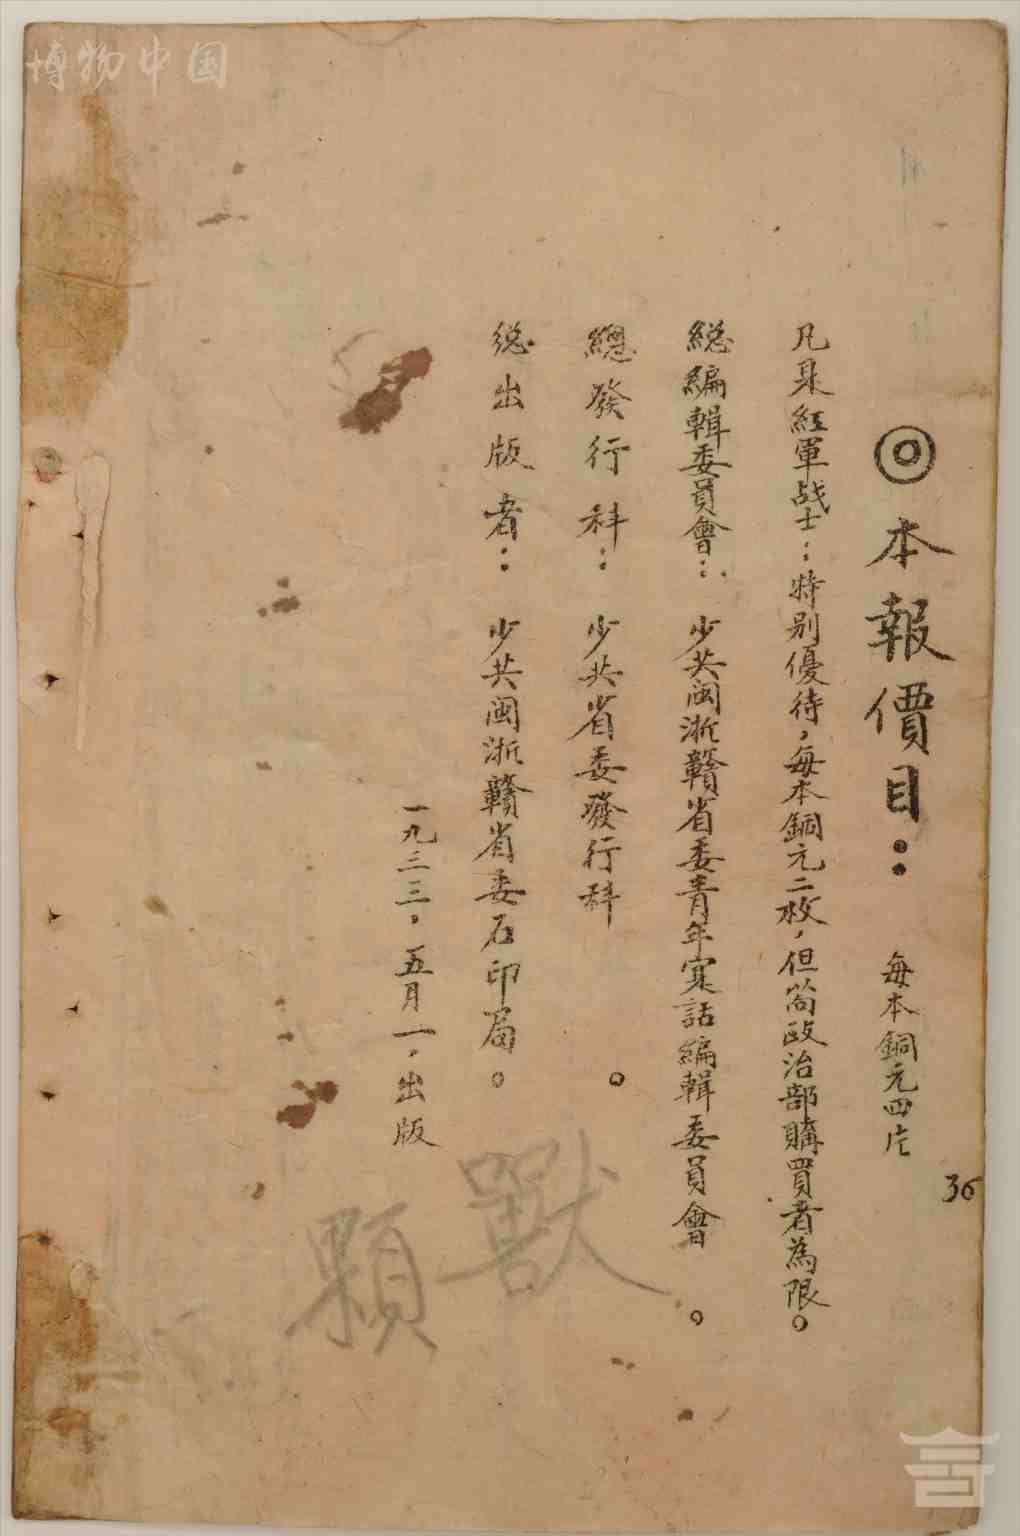 博物中国
◎本報價目：每本銅元四片
36
凡是紅軍战士：特别優待，每本銅元二枚，但向政治部購買者為限。
総編輯委員會：少共闽浙贛省委青年实話編輯委員會。
總發行科：少共省委發行科。
総出版者：少共闽浙贛省委石印局。
一九三三，五月一，出版
獸
顆